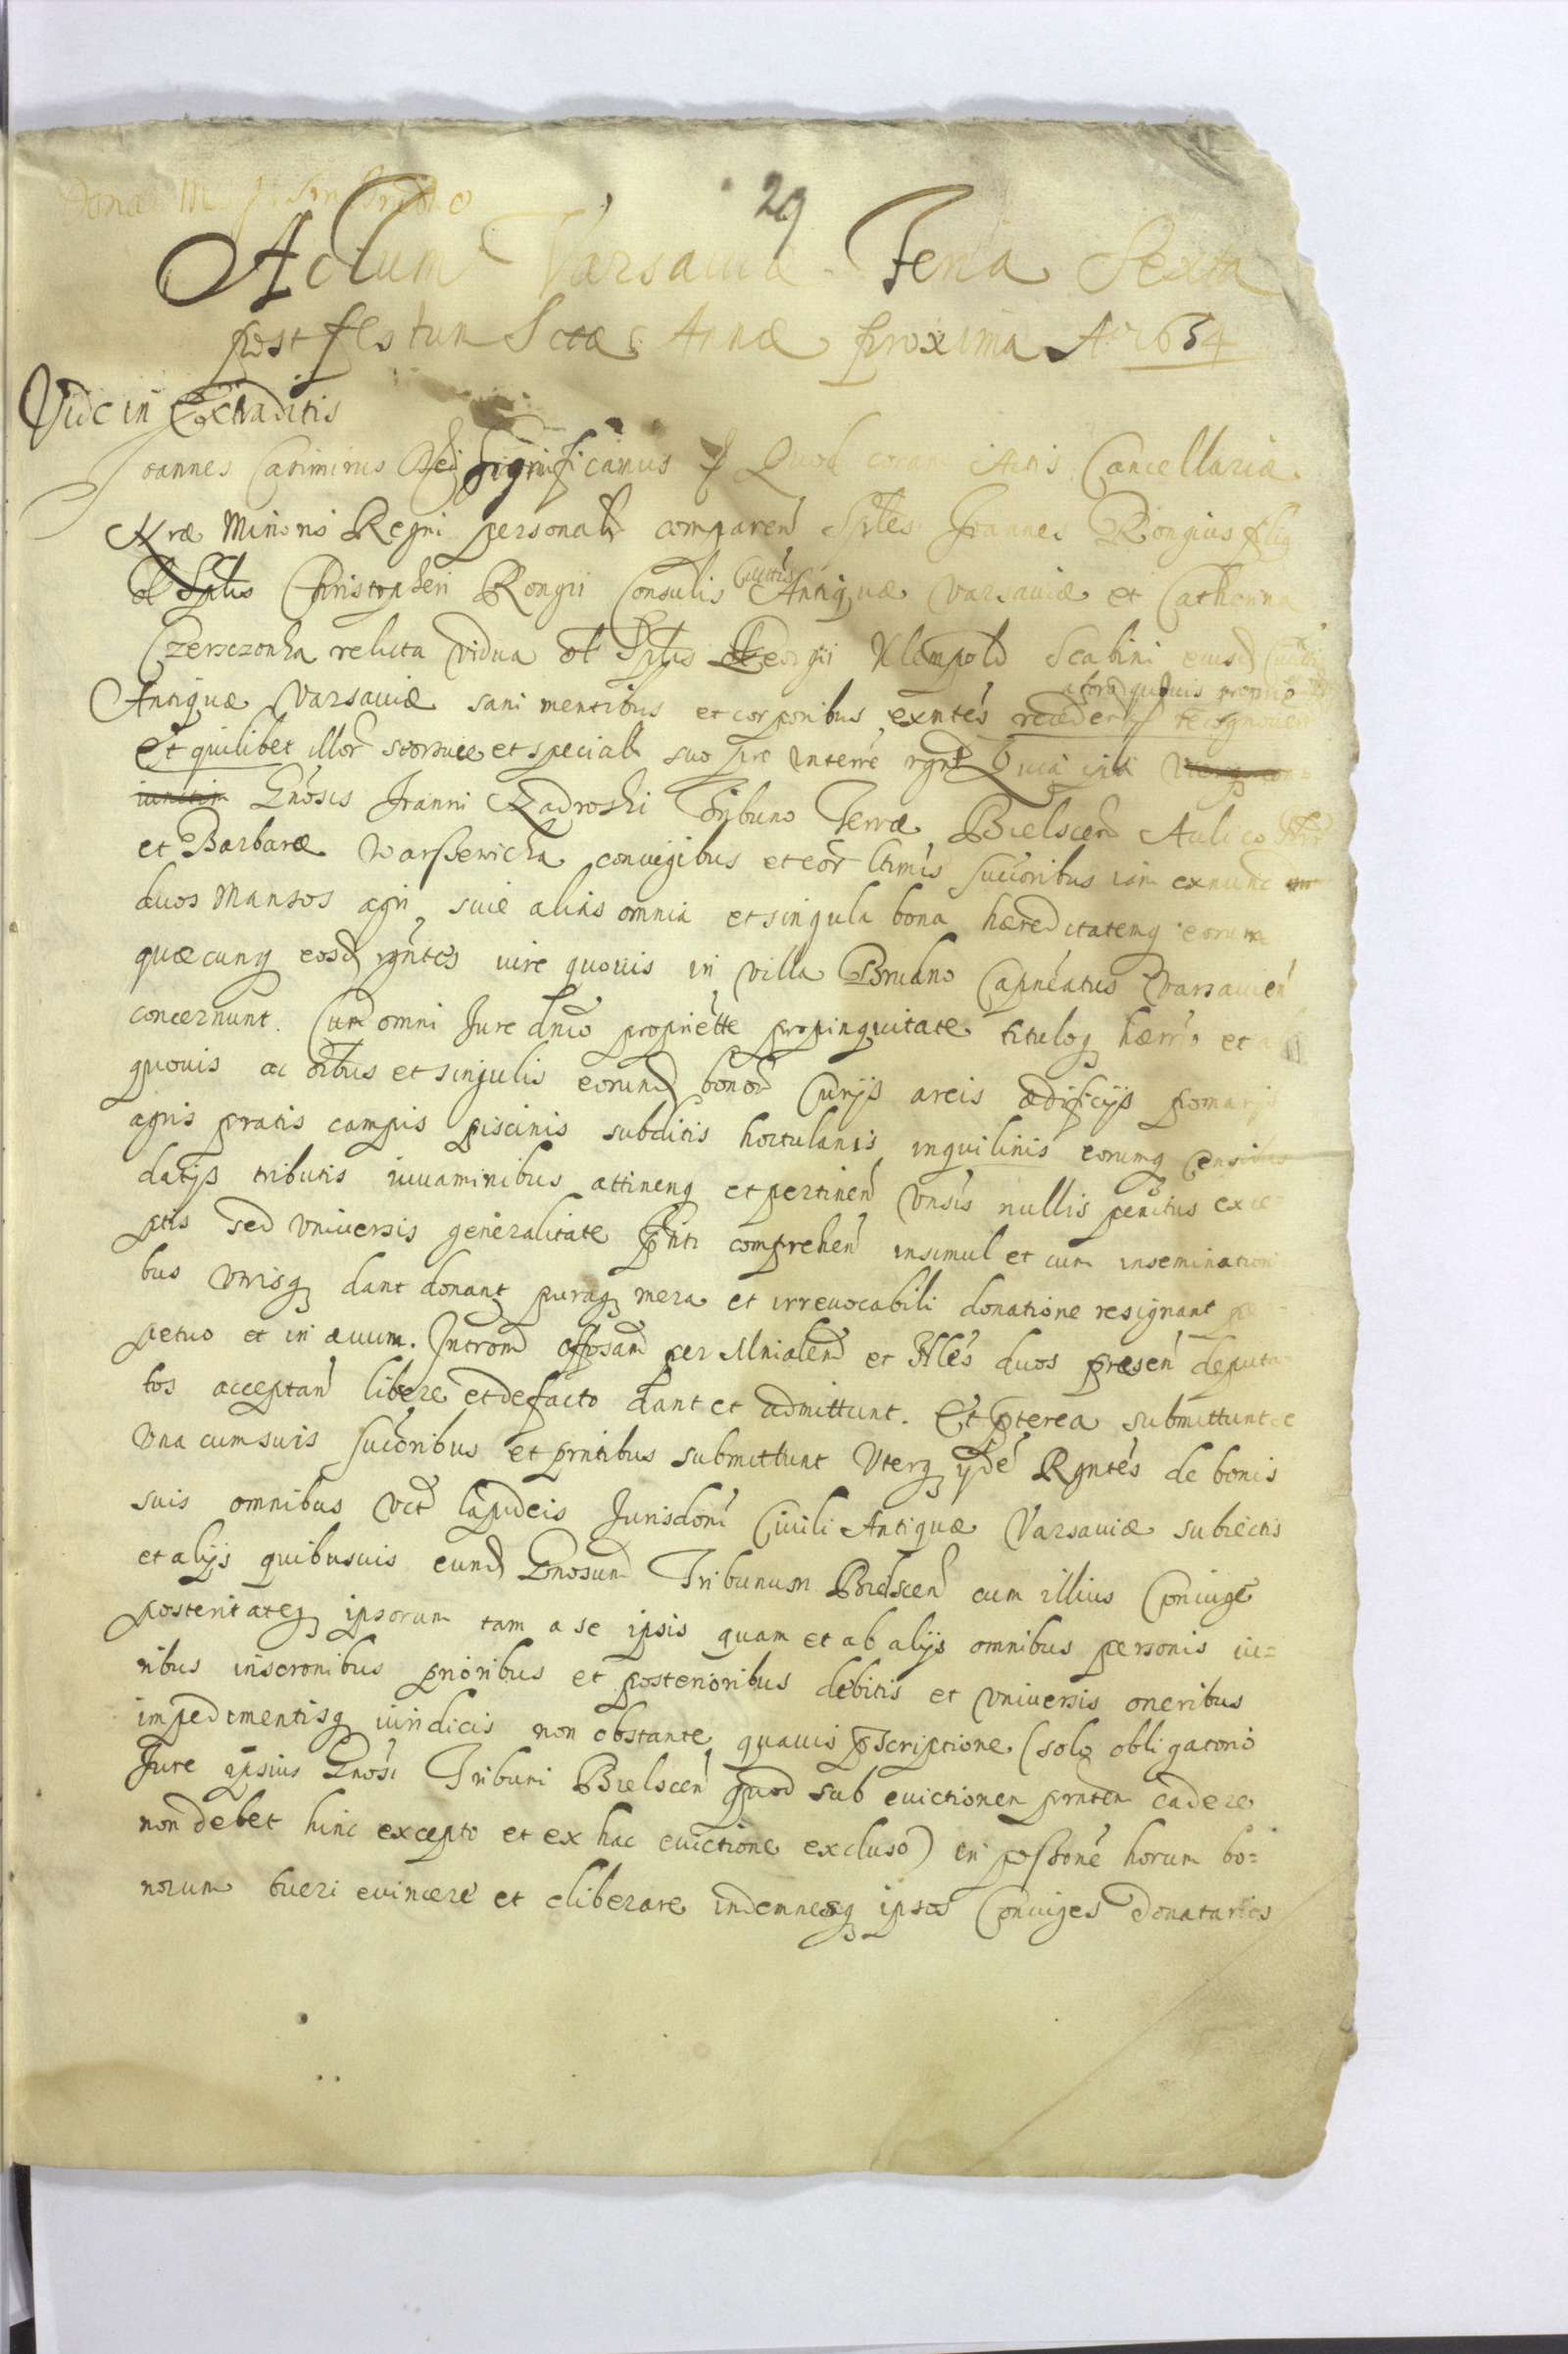 29
Actum Varsaviæ Feria Sexta
post festum Sctæ Annæ proxima Aō 1654
Vide in Extraditis
Joannes Casimirus Dei Significamus Quod coram Actis Cancellariæ
Nræ Minoris Regni personalr comparen Sptles Joannes Rongius filiq
ol Sptlis Christopheri Rongii Consulis Ciuittis Antiquæ Varsauiæ et Catherina
Czerszonka relicta Vidua ol Sptlis Georgii Klempold Scabini eiusd
Antiquæ Varsauiæ sani mentibus et corporibus exntes recedend recognouer
Et quilibet illor seorsiue et specialr suo pre interre rgnt Quia ipsi
Gnosis Joanni Zadroski Tribuno Terræ Bielscen Aulico
et Barbaræ Warßewicka coniugibus et eor ltimis succoribus iam exnunc
duos Mansos agri siue alias omnia et singula bona hæreditatemq eorum
quæcunq eosd rgntes iure quouis in villa Brudno Capneatus Varsauien
concernunt. Cum omni Jure dnio propriette propinquitate tituloq hærrio et
quouis ac oibus et singulis eorund bonor Curijs areis ædificijs pomarijs
agris pratis campis piscinis subditis hortulanis inquilinis eorumq Censibus
datijs tributis iuuaminibus attinenq et pertinen vnsis nullis penitus exce
ptis sed vniuersis generalitate pnti comprehen insimul et cum inseminationi
bus vtrisq dant donant puraq mera et irreuocabili donatione resignant
petuo et in æuum. Introm offosam per Mnialem et Nles duos præsen deputa
tos acceptan libere et de facto dant et admittunt. Et pterea submittunt se
vna cum suis succoribus et pntibus submittunt Vterq ijde Rgntes de bonis
suis omnibus vct lapideis Jurisdoni Ciuili Antiquæ Varsauiæ subiectis
et alijs quibusuis eund Gnosum Tribunum Bielscen cum illius Coniuge
posteritateq ipsorum tam a se ipsis quam et ab alijs omnibus personis iu=
ribus inscronibus prioribus et posterioribus debitis et vniuersis oneribus
impedimentisq iuridicis non obstante quauis pscriptione (solo obligatorio
Jure ipsius Gnosi Tribuni Bielscen quod sub euictionem pntem cadere
non debet hinc excepto et ex hac euictione excluso) in poßone horum bo=
norum tueri euincere et eliberare indemnesq ipsos Coniuges Donatarios